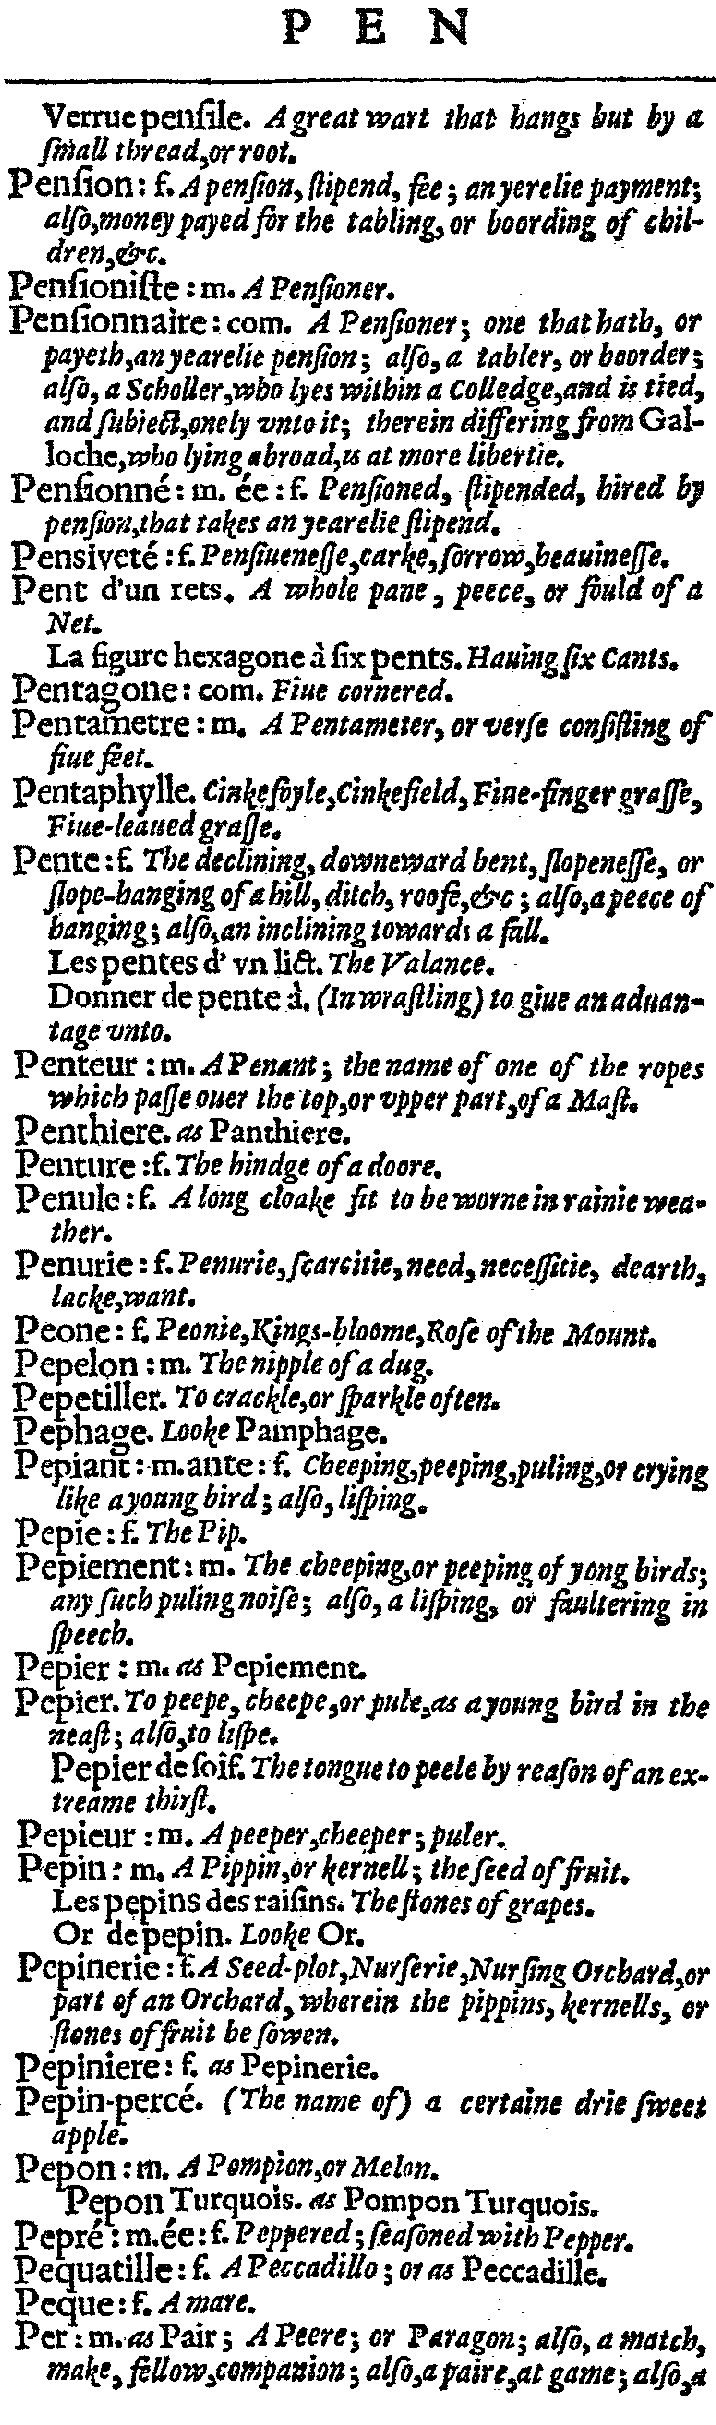 P E N
Verrue pensile. A great wart that hangs but by a
ſmall thread, or root.
Penſion: f. A penſion, ſtipend, fee; an yerelie payment;
alſo, money payed for the tabling, or boording of chil-
dren, &c.
Penſioniſte: m. A Penſioner.
Penſionnaire: com. A Penſioner; one that hath, or
payeth, an yearelie penſion; alſo, a tabler, or boorder;
alſo, a Scholler, who lyes within a Colledge, and is tied,
and ſubiect, onely vnto it; therein differing from Gal-
loche, who lying abroad, is at more libertie.
Penſionné: m. ée: f. Penſioned, ſtipended, hired by
penſion, that takes an yearelie ſtipend.
Pensiveté: f. Penſiueneſſe, carke, ſorrow, heauineſſe.
Pent d'un rets. A whole pane, peece, or fould of a
Net.
La figure hexagone à ſix pents. Hauing ſix Cants.
Pentagone: com. Fiue cornered.
Pentametre: m. A Pentameter, or verſe conſiſting of
fiue feet.
Pentaphylle. Cinkefoyle, Cinkefield, Fiue-finger graſſe,
Fiue-leaued graſſe.
Pente: f. The declining, downeward bent, ſlopeneſſe, or
ſlope-hanging of a hill, ditch, roofe, &c; alſo, a peece of
hanging; alſo, an inclining towards a fall.
Les pentes d'vn lict. The Valance.
Donner de pente à. (In wraſtling) to giue an aduan-
tage vnto.
Penteur: m. A Penant; the name of one of the ropes
which paſſe ouer the top, or vpper part, of a Maſt.
Penthiere. as Panthiere.
Penture: f. The hindge of a doore.
Penule: f. A long cloake fit to be worne in rainie wea-
ther.
Penurie: f. Penurie, ſcarcitie, need, neceſſitie, dearth,
lacke, want.
Peone: f. Peonie, Kings-bloome, Roſe of the Mount.
Pepelon: m. The nipple of a dug.
Pepetiller. To crackle, or ſparkle often.
Pephage. Looke Pamphage.
Pepiant: m. ante: f. Cheeping, peeping, puling, or crying
like a young bird; alſo, liſping.
Pepie: f. The Pip.
Pepiement: m. The cheeping, or peeping of yong birds;
any ſuch puling noiſe; alſo, a liſping, or faultering in
ſpeech.
Pepier: m. as Pepiement.
Pepier. To peepe, cheepe, or pule, as a young bird in the
neaſt; alſo, to liſpe.
Pepier de ſoif. The tongue to peele by reaſon of an ex-
treame thirſt.
Pepieur: m. A peeper, cheeper; puler.
Pepin: m. A Pippin, or kernell; the ſeed of fruit.
Les pepins des raiſins. The ſtones of grapes.
Or de pepin. Looke Or.
Pepinerie: f. A Seed-plot, Nurſerie, Nurſing Orchard, or
part of an Orchard, wherein the pippins, kernells, or
ſtones of fruit be ſowen.
Pepiniere: f. as Pepinerie.
Pepin-percé. (The name of) a certaine drie ſweet
apple.
Pepon: m. A Pompion, or Melon.
Pepon Turquois. as Pompon Turquois.
Pepré: m. ée: f. Peppered; ſeaſoned with Pepper.
Pequatille: f. A Peccadillo; or as Peccadille.
Peque: f. A mare.
Per: m. as Pair; A Peere; or Paragon; alſo, a match,
make, fellow, companion; alſo, a paire, at game; alſo, a